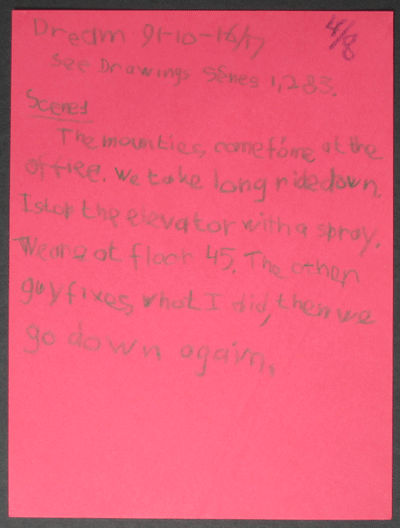 4/8
Dream 91-10-16/17
See Drawings Scenes 1,2&3.
Scene 1
The mounties, come for me at the
office. We take long ride down.
I stop the elevator with a spray.
We are at floor 45. The other
guy fixes what I did, then we
go down again.